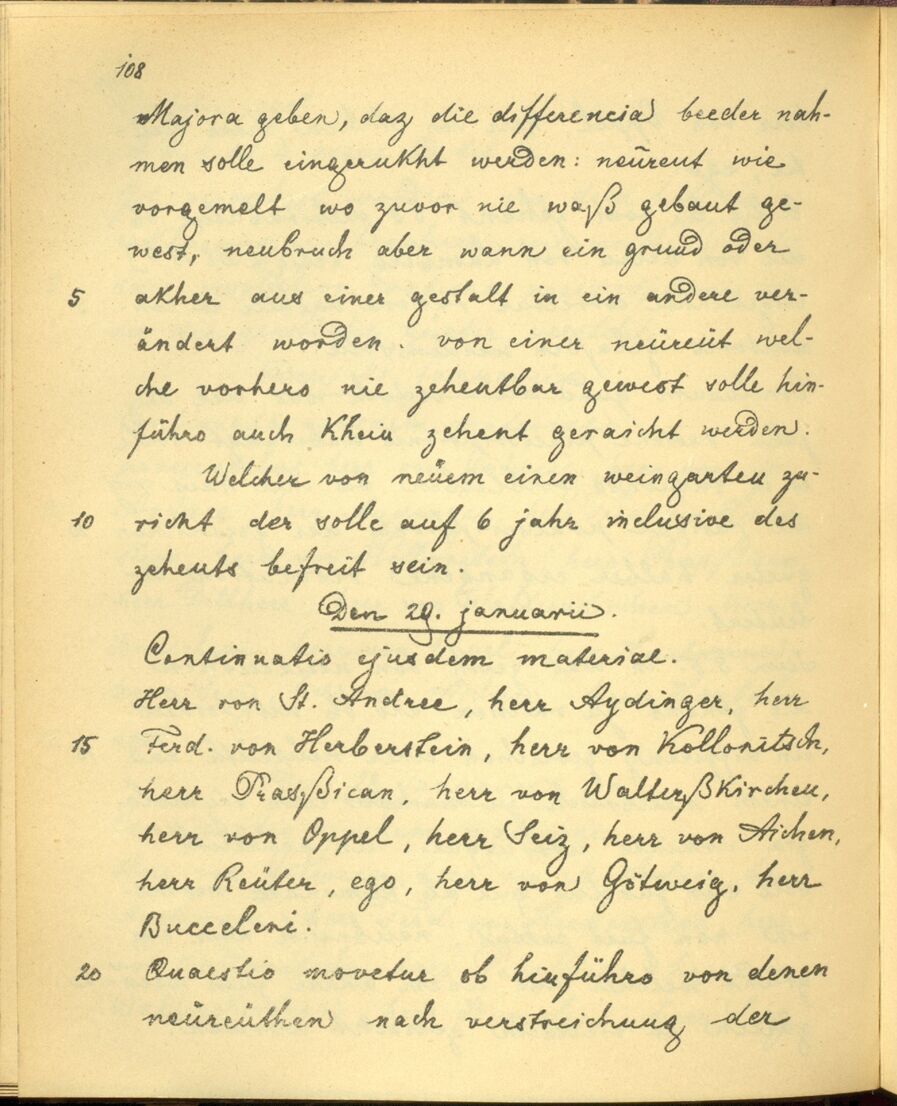 108
Majora geben, daz die differencia beeder nah-
men solle eingerukht werden: neüreut wie
vorgemelt wo zuvor nie waß gebaut ge-
west, neubruch aber wann ein grund oder
5 akher aus einer gestalt in ein andere ver-
ändert worden. von einer neüreüt wel-
che vorhero nie zehentbar gewest solle hin-
führo auch khein zehent geraicht werden.
Welcher von neüem einen weingarten zu-
10 richt der solle auf 6 jahr inclusive des
zehents befreit sein.
Den 29. januarii.
Continuatio ejusdem materiae.
Herr von St. Andree, herr Aydinger, herr
15 Ferd. von Herberstein, herr von Kollonitsch,
herr Prasßican, herr von Walterßkirchen,
herr von Oppel, herr Seiz, herr von Aichen,
herr Reüter, ego, herr von Götweig, herr
Bucceleni.
20 Quaestio movetur ob hinführo von denen
neüreüthen nach verstreichung der